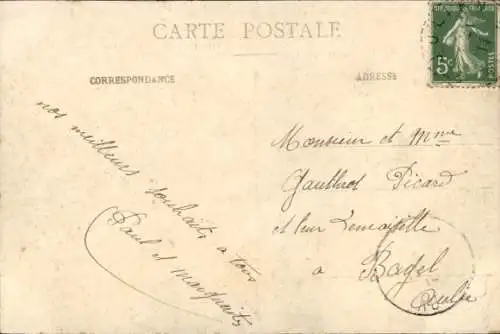 CARTE POSTALE
CORRESPONDANCE
ADRESSE
5c
POSTES
nos meilleurs souhaits a tous
Paul et Marguerite
Monsieur et Mme
Gauthrot Picard
et leur Demoiselle
a Bagel
Aube